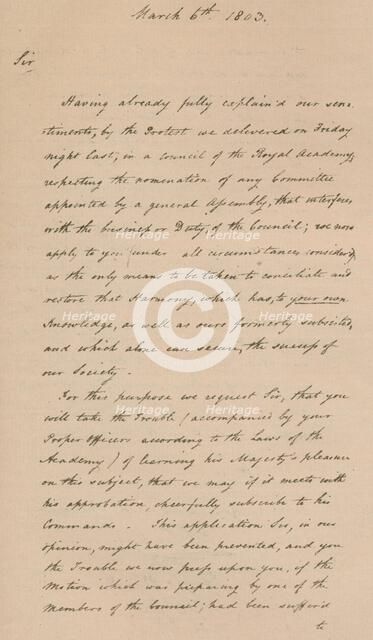 March 6th. 1803.
Sir
Having already fully explain'd our sen-
timents, by the Protest we delivered on Friday
night last, in a Council of the Royal Academy,
respecting the nomination of any Committee
appointed by a general Assembly, that interferes
with the business or Duty, of the Council; we now
apply to you under all circumstances consider'd,
as the only means to be taken to conciliate and
restore that Harmony, which has, to your own
Knowledge, as well as ours formerly subsisted,
and which alone can secure, the success of
our Society.
For this purpose we request Sir, that you
will take the Trouble (accompanied by your
Proper officers according to the Laws of the
Academy) of learning his Majesty's pleasure
on this subject, that we may if it meets with
his approbation, cheerfully subscribe to his
Commands. This application Sir, in our
opinion, might have been prevented, and you
the Trouble we now press upon you, if the
Motion which was preparing by one of the
Members of the Council; had been suffer'd
to
Heritage
Heritage
Heritage
Heritage
Heritage
Heritage
Heritage
Heritage